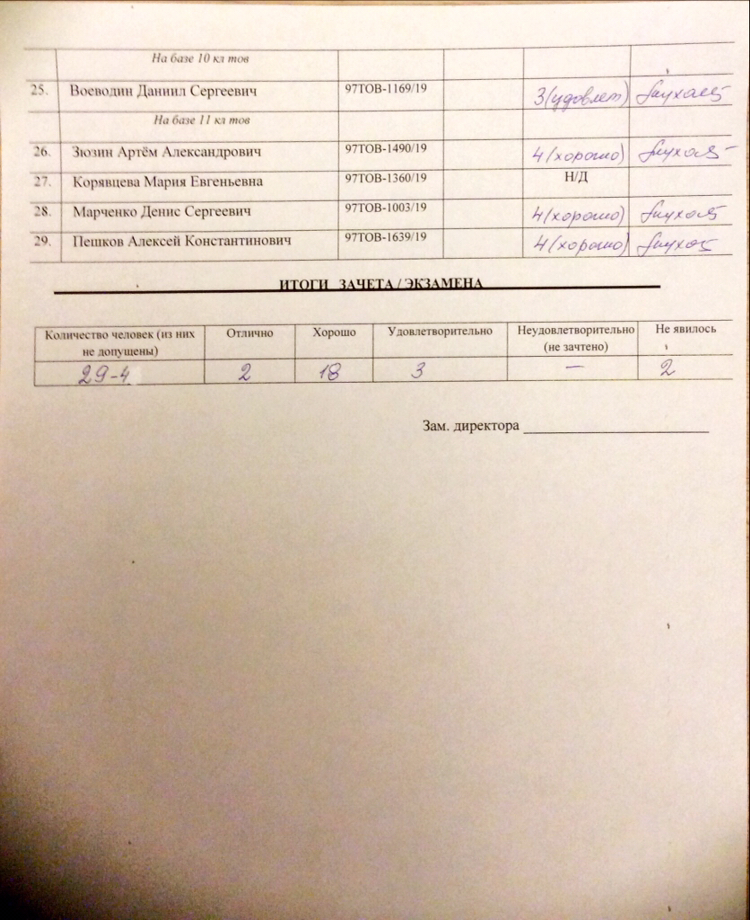 На базе 10 кл тов
25. Воеводин Даниил Сергеевич 97ТОВ-1169/19 3(удовлет)
На базе 11 кл тов
26. Зюзин Артём Александрович 97ТОВ-1490/19 4(хорошо)
27. Корявцева Мария Евгеньевна 97ТОВ-1360/19 Н/Д
28. Марченко Денис Сергеевич 97ТОВ-1003/19 4(хорошо)
29. Пешков Алексей Константинович 97ТОВ-1639/19 4(хорошо)
ИТОГИ ЗАЧЕТА / ЭКЗАМЕНА
Количество человек (из них Отлично Хорошо Удовлетворительно Неудовлетворительно Не явилось
не допущены) (не зачтено)
29-4 2 18 3 — 2
Зам. директора